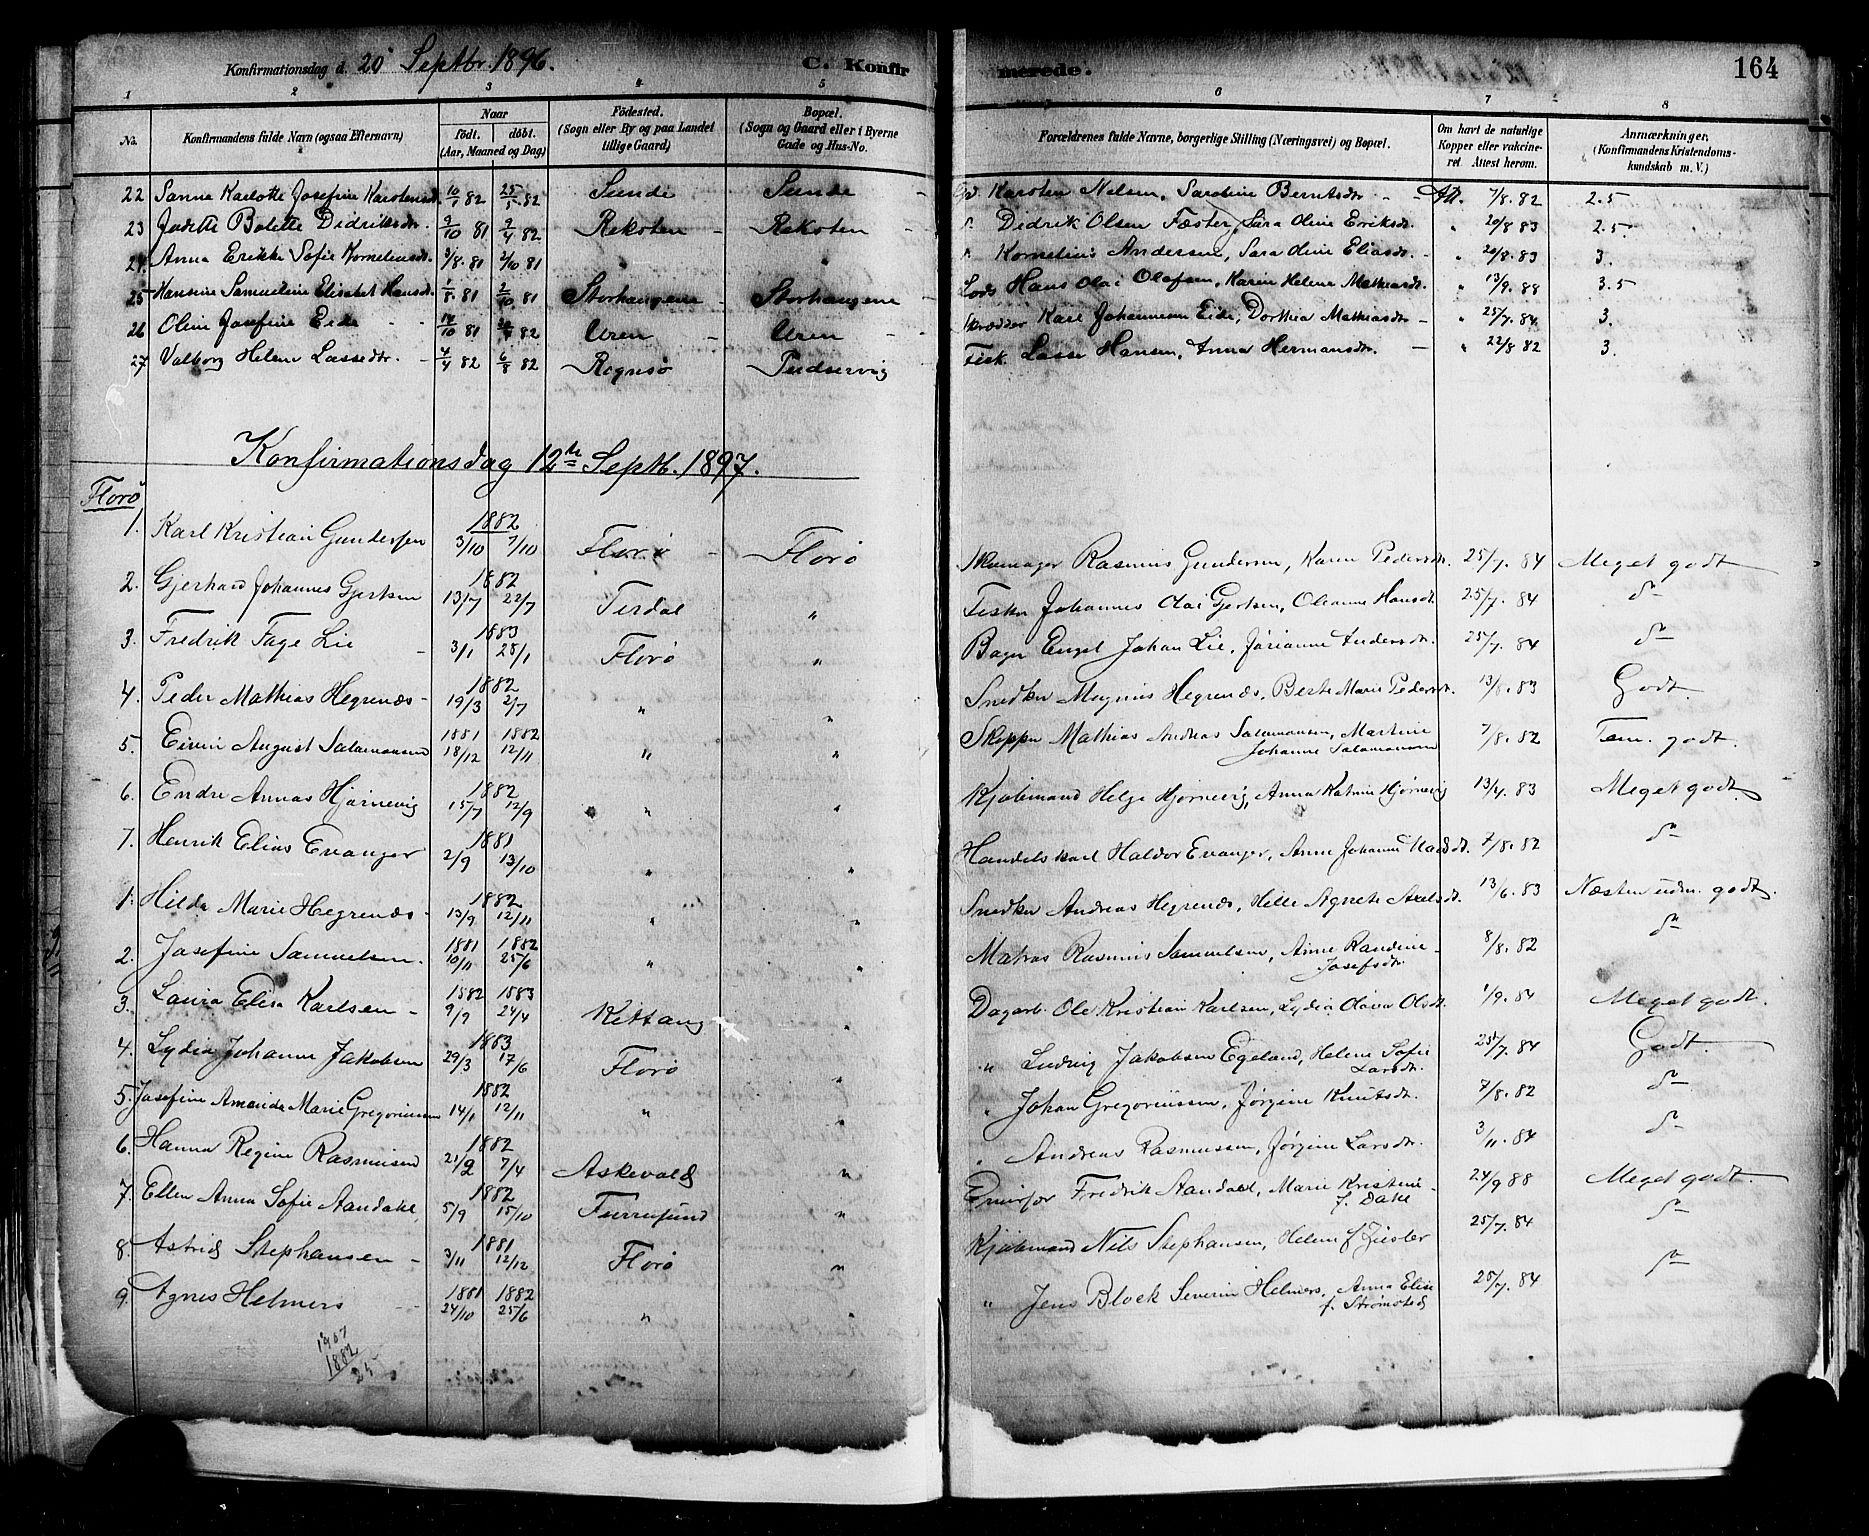 Konfirmationsdag d. 20 Septbr. 1896. C. Konfirmerede. 164
1 2 3 4 5 6 7 8
No. Konfirmandens fulde Navn (ogsaa Efternavn) Naar født. døbt. (Aar, Maaned og Dag) Fødested. (Sogn eller By og paa Landet tillige Gaard) Bopæl. (Sogn og Gaard eller i Byerne Gade og Hus-No. Forældrenes fulde Navne, borgerlige Stilling (Næringsvei) og Bopæl. Om havt de naturlige Kopper eller vakcineret. Attest herom. Anmærkninger. (Konfirmandens Kristendomskundskab m. V.)
22 Sanna Karlotte Josefine Karstensdt. 10/1 82 25/5 82 Sunde Sunde Karsten Nelsen, Sarotine Berntsdt. 7/8. 82 2.5
23 Jadette Bolette Didriksdt. 9/10 81 9/4 82 Reksten Reksten Didrik Olsen Fæster, Sara Oline Eriksdt. " 20/8 83 2.5
24 Anna Erikke Sofie Korneliusdt. 3/8. 81 2/10 81 " " Kornelius Andersen, Sara Oline Eliasdt. " 20/8. 83 3.
25 Hansine Samueline Elisabet Hansdt. 1/8. 81 2/10 81 Storhaugene Storhaugene Lods Hans Olai Olafsen, Karen Helene Mathiasdt. " 13/9. 88 3.5
26 Oline Josefine Eide 14/10 81 82 Uren Uren Skrædder Karl Johannesen Eide, Dorthea Mathiasdt. " 25/7. 84 3.
27 Valborg Helene Lassedtr. 4/4 82 6/8 82 Rognsø Pudservig Fisk. Lasse Hansen, Anna Hermansdt. " 22/8 82 3.
Konfirmationsdag 12te Septb. 1897.
Florø
1. Karl Kristian Gundersen 1882 3/10 7/10 Florø Florø Skomager Rasmus Gundersen, Karen Pedersdt. 25/7. 84 Meget godt
2. Gjerhard Johannes Gjertsen 1882 13/7 22/7 Terdal " Fisker Johannes Olai Gjertsen, Oleanne Hansdt. 25/7. 84 do
3. Fredrik Fage Lie 1883 3/1 28/1 Florø " Bager Engel Johan Lie, Jørianne Andersdt. 25/7. 84 do
4. Peder Mathias Hegrenæs 1882 19/3 2/7 " " Snedker Magnus Hegrenæs, Berte Marie Pedersdt. 13/8. 83 Godt.
5. Eivin August Salamonsen 1881 18/12 1882 12/11 " " Skipper Mathias Andreas Salamonsen, Martine Johanne Salamonsen 7/8. 82 Tem. godt.
6. Endre Annas Hjørnevig 1882 15/7 12/9 " " Kjøbmand Helge Hjørnevig, Anna Katrine Hjørnevig 13/4. 83 Meget godt.
7. Henrik Elias Evanger 1881 2/9 13/10 " " Handelskarl Haldor Evanger, Anne Johanne 7/8. 82 do
1. Hilda Marie Hegrenæs 1882 13/9 12/11 " " Snedker Andreas Hegrenæs, Hille Agnete Axelsdt. 13/6. 83 Næsten udm. godt.
2. Josefine Samuelsen. 1881 10/11 1882 25/6 " " Matros Rasmus Samuelsen, Anne Randine Josefsdt. 8/8. 82 do
3. Laura Elisa Karlsen 1882 9/9 1883 24/4 Kittang " Dagarb. Ole Kristian Karlsen, Lydia Olava Olsdt. 1/9. 84 Meget godt.
4. Lydia Johanne Jakobsen 1883 29/3 17/6 Florø " " Ludvig Jakobsen Egeland, Helene Sofie Larsdt. 25/7. 84 Godt.
5. Josefine Amanda Marie Gregoriussen 1882 14/1 12/11 " " " Johan Gregoriussen, Jørgine Knutsdt. 7/8. 82 do
6. Hanna Regine Rasmussen 1882 21/2 7/4 Askevold " " Andreas Rasmussen, Jørgine Larsdt. 3/11. 84 do
7. Ellen Anna Sofie Aandahl, 1882 5/9 15/10 Furresund " Fredrik Aandahl, Marie Kristine f. Dahl 24/9 88 Meget godt.
8. Astrid Stephansen 1881 3/11 12/12 Florø " Kjøbmand Nils Stephansen, Helene f. Ziesler 25/7. 84 do
9. Agnes Helmers 1881 24/10 1882 25/6 " " " Jens Block Severin Helmers, Anna Elise f. Strømsted 25/7. 84 do
1907
1882
25